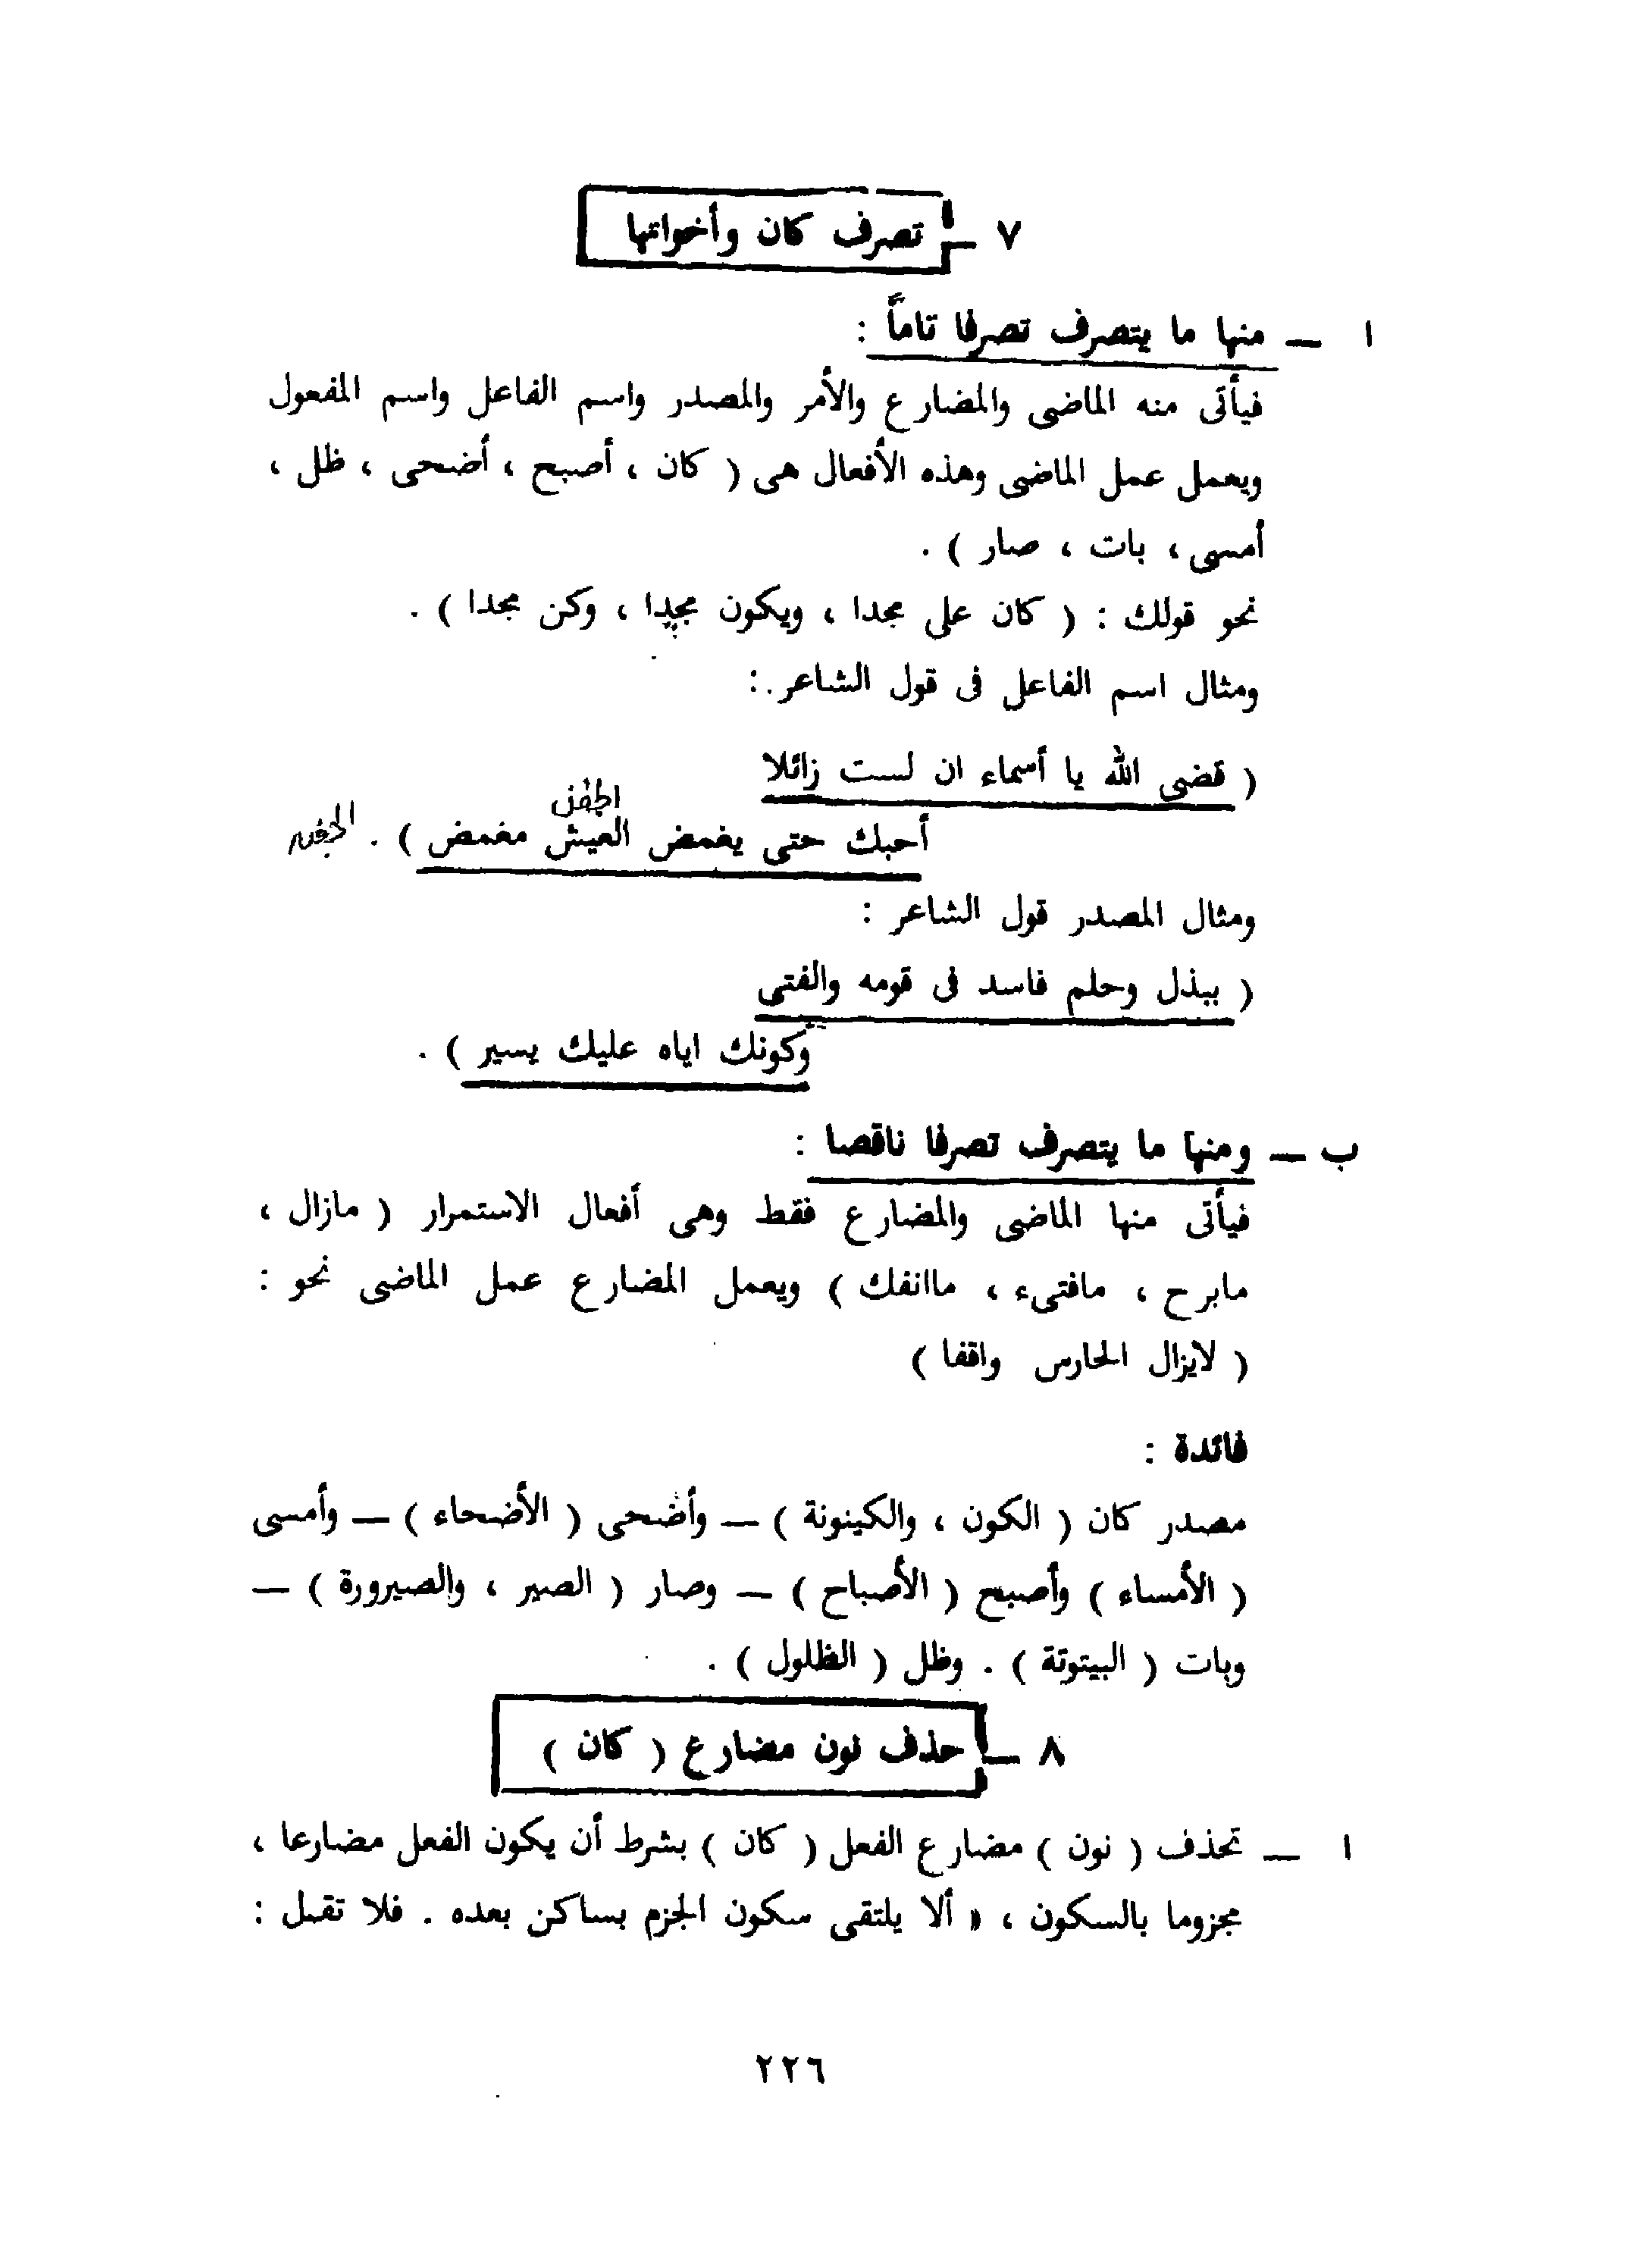 ٧ — تصرف كان وأخواتها
ا — منها ما يتصرف تصرفا تاماً :
فيأتى منه الماضى والمضارع والأمر والمصدر واسم الفاعل واسم المفعول
ويعمل عمل الماضى وهذه الأفعال هى ( كان ، أصبح ، أضحى ، ظل ،
أمسى ، بات ، صار ) .
نحو قولك : ( كان على مجدا ، ويكون مجدا ، وكن مجدا ) .
ومثال اسم الفاعل فى قول الشاعر :
( قضى الله يا أسماء ان لست زائلا
الجفن
أحبك حتى يغمض العيش مغمض ) . الجفن
ومثال المصدر قول الشاعر :
( ببذل وحلم فاسد فى قومه والفتى
وكونك اياه عليك يسير ) .
ب — ومنها ما يتصرف تصرفا ناقصا :
فيأتى منها الماضى والمضارع فقط وهى أفعال الاستمرار ( مازال ،
مابرح ، مافتىء ، ماانفك ) ويعمل المضارع عمل الماضى نحو :
( لايزال الحارس واقفا )
فائدة :
مصدر كان ( الكون ، والكينونة ) — وأضحى ( الأضحاء ) — وأمسى
( الأمساء ) وأصبح ( الأصباح ) — وصار ( الصير ، والصيرورة ) —
وبات ( البيتوتة ) . وظل ( الظلول ) .
٨ — حذف نون مضارع ( كان )
ا — تحذف ( نون ) مضارع الفعل ( كان ) بشرط أن يكون الفعل مضارعا ،
مجزوما بالسكون ، » ألا يلتقى سكون الجزم بساكن بعده . فلا تقبل :
٢٢٦